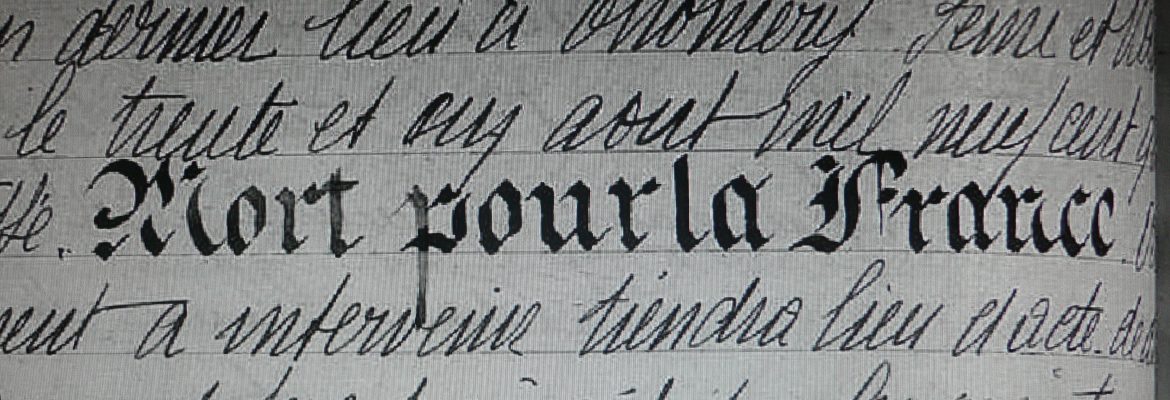 dernier lieu à Thomery Seine et
le trente et un août mil neuf cent
Mort pour la France
à intervenir tiendra lieu d'acte de